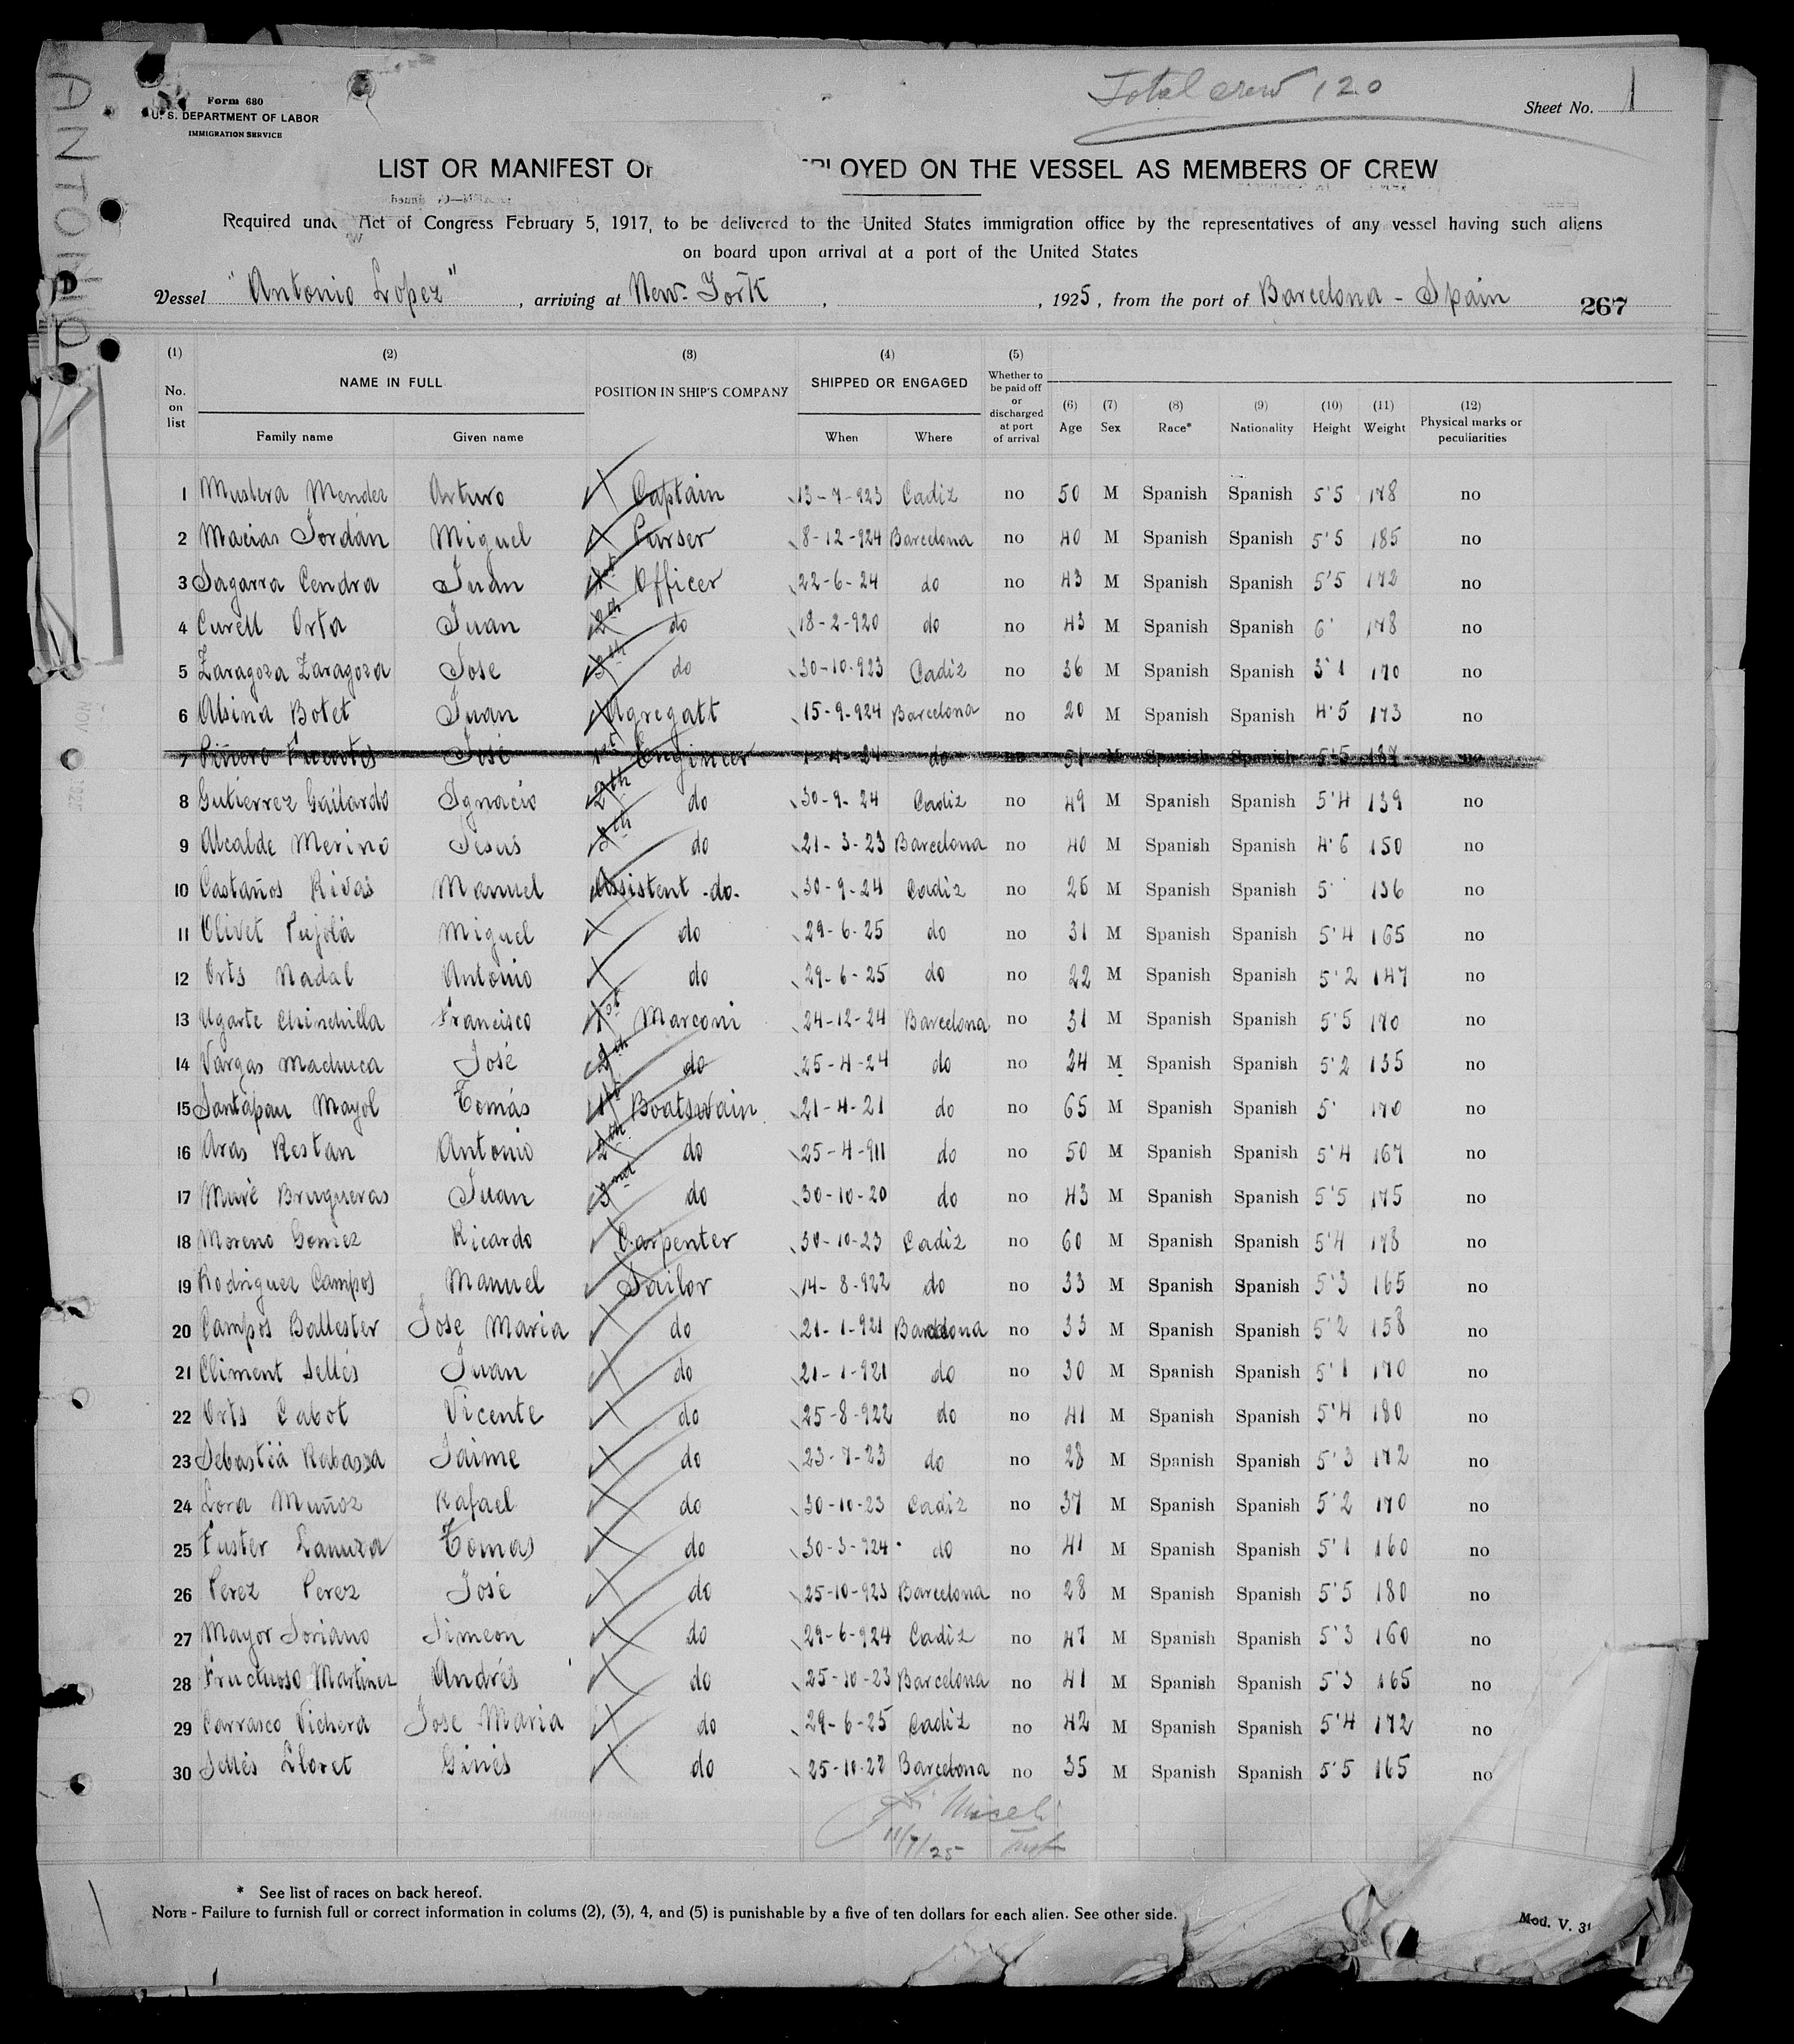 Total crew 120
Form 680
U. S. DEPARTMENT OF LABOR
IMMIGRATION SERVICE
Sheet No. 1
ANTONIO
LIST OR MANIFEST OF PLOYED ON THE VESSEL AS MEMBERS OF CREW
Required unde Act of Congress February 5, 1917, to be delivered to the United States immigration office by the representatives of any vessel having such aliens
on board upon arrival at a port of the United States
Vessel "Antonio López", arriving at New-York, , 1925, from the port of Barcelona - Spain 267
(1) (2) (3) (4) (5)
No. on list NAME IN FULL POSITION IN SHIP'S COMPANY SHIPPED OR ENGAGED Whether to be paid off or discharged at port of arrival (6) Age (7) Sex (8) Race* (9) Nationality (10) Height (11) Weight (12) Physical marks or peculiarities
Family name Given name When Where
1 Mustera Mendez Arturo Captain 13-7-923 Cadiz no 50 M Spanish Spanish 5'5 178 no
2 Macias Jordán Miguel Purser 8-12-924 Barcelona no 40 M Spanish Spanish 5'5 185 no
3 Sagarra Cendra Juan 1st Officer 22-6-24 do no 43 M Spanish Spanish 5'5 172 no
4 Curell Orta Juan 2th do 18-2-920 do no 43 M Spanish Spanish 6' 178 no
5 Zaragoza Zaragoza Jose 3th do 30-10-923 Cadiz no 36 M Spanish Spanish 3'1 170 no
6 Alsina Botet Juan Agregatt 15-9-924 Barcelona no 20 M Spanish Spanish 4'5 173 no
7 Piñero Fuentes José 1st Engineer 1-4-24 do no 51 M Spanish Spanish 5'5 137 no
8 Gutierrez Gallardo Ignacio 2th do 30-9-24 Cadiz no 49 M Spanish Spanish 5'4 139 no
9 Alcalde Merino Jesus 3th do 21-3-23 Barcelona no 40 M Spanish Spanish 4'6 150 no
10 Castaños Rivas Manuel Assistent -do- 30-9-24 Cadiz no 26 M Spanish Spanish 5' 136 no
11 Olivet Pujolá Miguel do 29-6-25 do no 31 M Spanish Spanish 5'4 165 no
12 Orts Nadal Antonio do 29-6-25 do no 22 M Spanish Spanish 5'2 147 no
13 Ugarte Chinchilla Francisco 1st Marconi 24-12-24 Barcelona no 31 M Spanish Spanish 5'5 170 no
14 Vargas Machuca José 2th do 25-4-24 do no 24 M Spanish Spanish 5'2 135 no
15 Santapau Mayol Tomás 1st Boatswain 21-4-21 do no 65 M Spanish Spanish 5' 170 no
16 Aras Restan Antonio 2th do 25-4-911 do no 50 M Spanish Spanish 5'4 167 no
17 Muré Brugueras Juan 3nd do 30-10-20 do no 43 M Spanish Spanish 5'5 175 no
18 Moreno Gomez Ricardo Carpenter 30-10-23 Cadiz no 60 M Spanish Spanish 5'4 178 no
19 Rodriguez Campos Manuel Sailor 14-8-922 do no 33 M Spanish Spanish 5'3 165 no
20 Campos Ballester Jose Maria do 21-1-921 Barcelona no 33 M Spanish Spanish 5'2 158 no
21 Climent Sellés Juan do 21-1-921 do no 30 M Spanish Spanish 5'1 170 no
22 Orts Cabot Vicente do 25-8-922 do no 41 M Spanish Spanish 5'4 180 no
23 Sebastiá Rabassa Jaime do 23-7-23 do no 28 M Spanish Spanish 5'3 172 no
24 Lora Muñoz Rafael do 30-10-23 Cadiz no 37 M Spanish Spanish 5'2 170 no
25 Fuster Lanuza Tomas do 30-3-924 do no 41 M Spanish Spanish 5'1 160 no
26 Perez Perez José do 25-10-923 Barcelona no 28 M Spanish Spanish 5'5 180 no
27 Mayor Soriano Simeon do 29-6-924 Cadiz no 47 M Spanish Spanish 5'3 160 no
28 Fructuoso Martinez Andrés do 25-10-23 Barcelona no 41 M Spanish Spanish 5'3 165 no
29 Carrasco Vichera Jose Maria do 29-6-25 Cadiz no 42 M Spanish Spanish 5'4 172 no
30 Sellés Lloret Ginés do 25-10-22 Barcelona no 35 M Spanish Spanish 5'5 165 no
11/7/25
* See list of races on back hereof.
NOTE - Failure to furnish full or correct information in colums (2), (3), 4, and (5) is punishable by a five of ten dollars for each alien. See other side.
Mod. V. 31